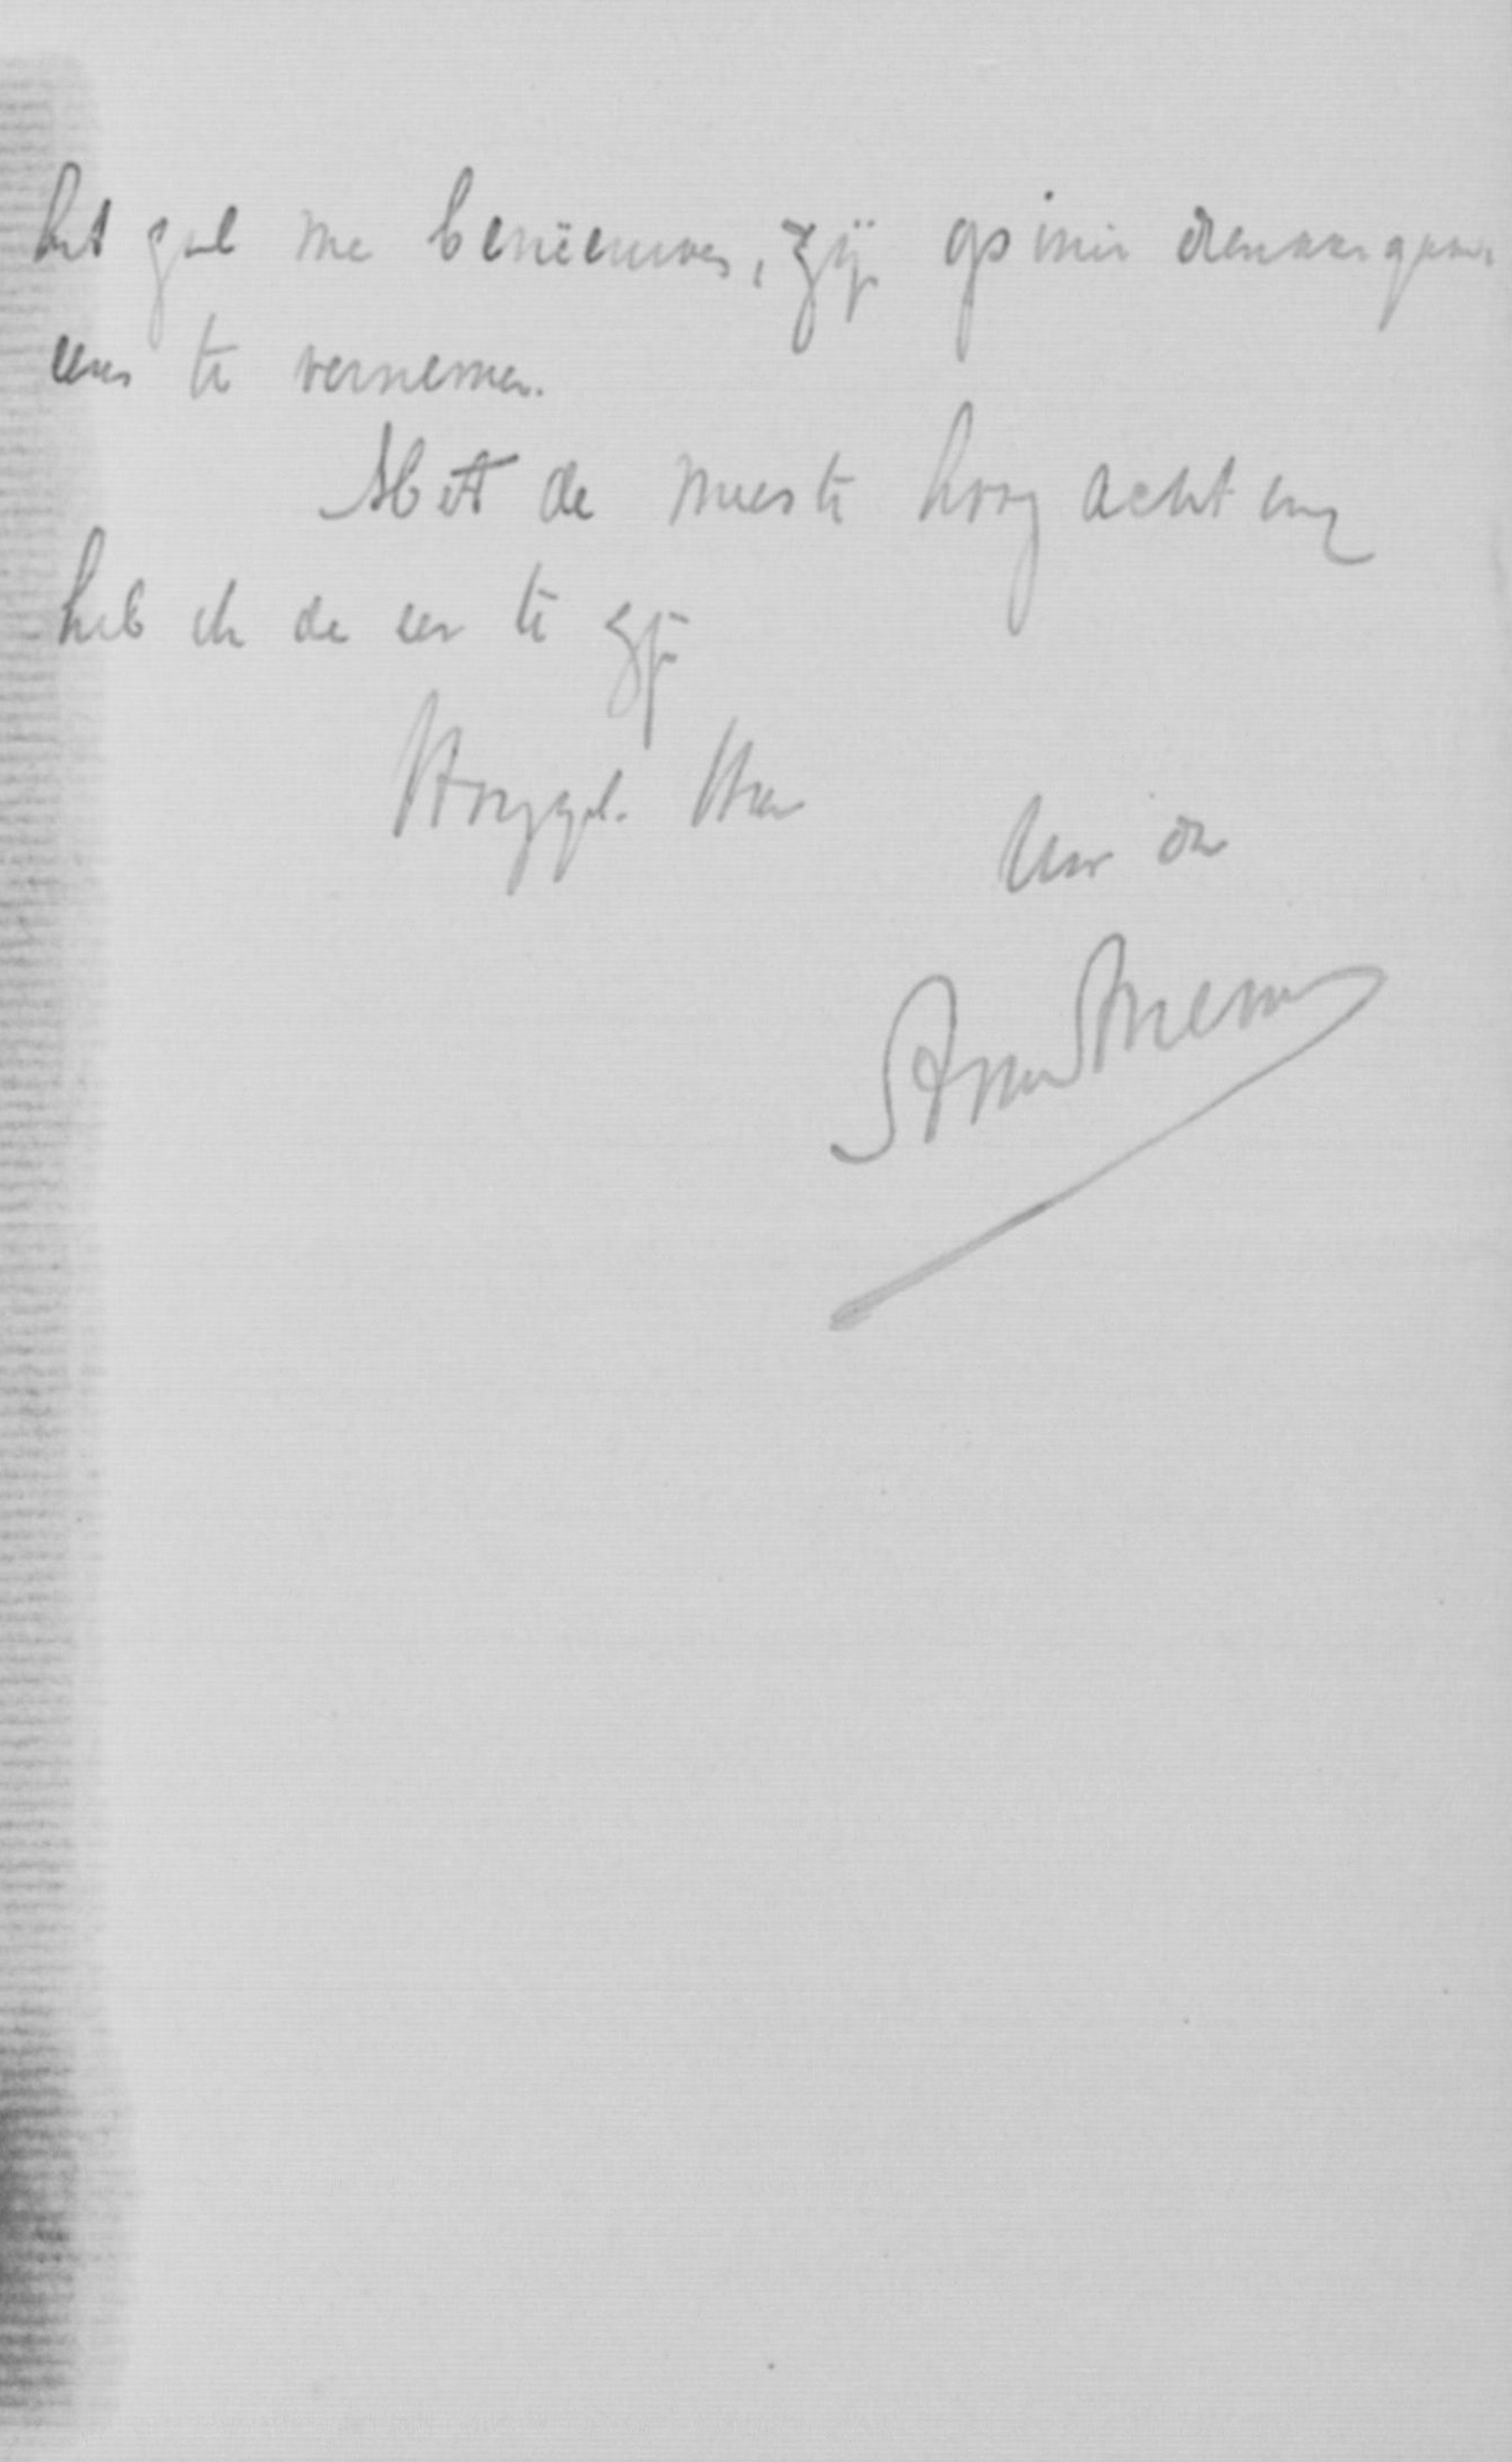 het zal me benieuwen, zijn opinie dienaangaande
eens te vernemen.
Met de meeste hoogachting
heb ik de eer te zijn
Hooggel. Heer
Uw dr